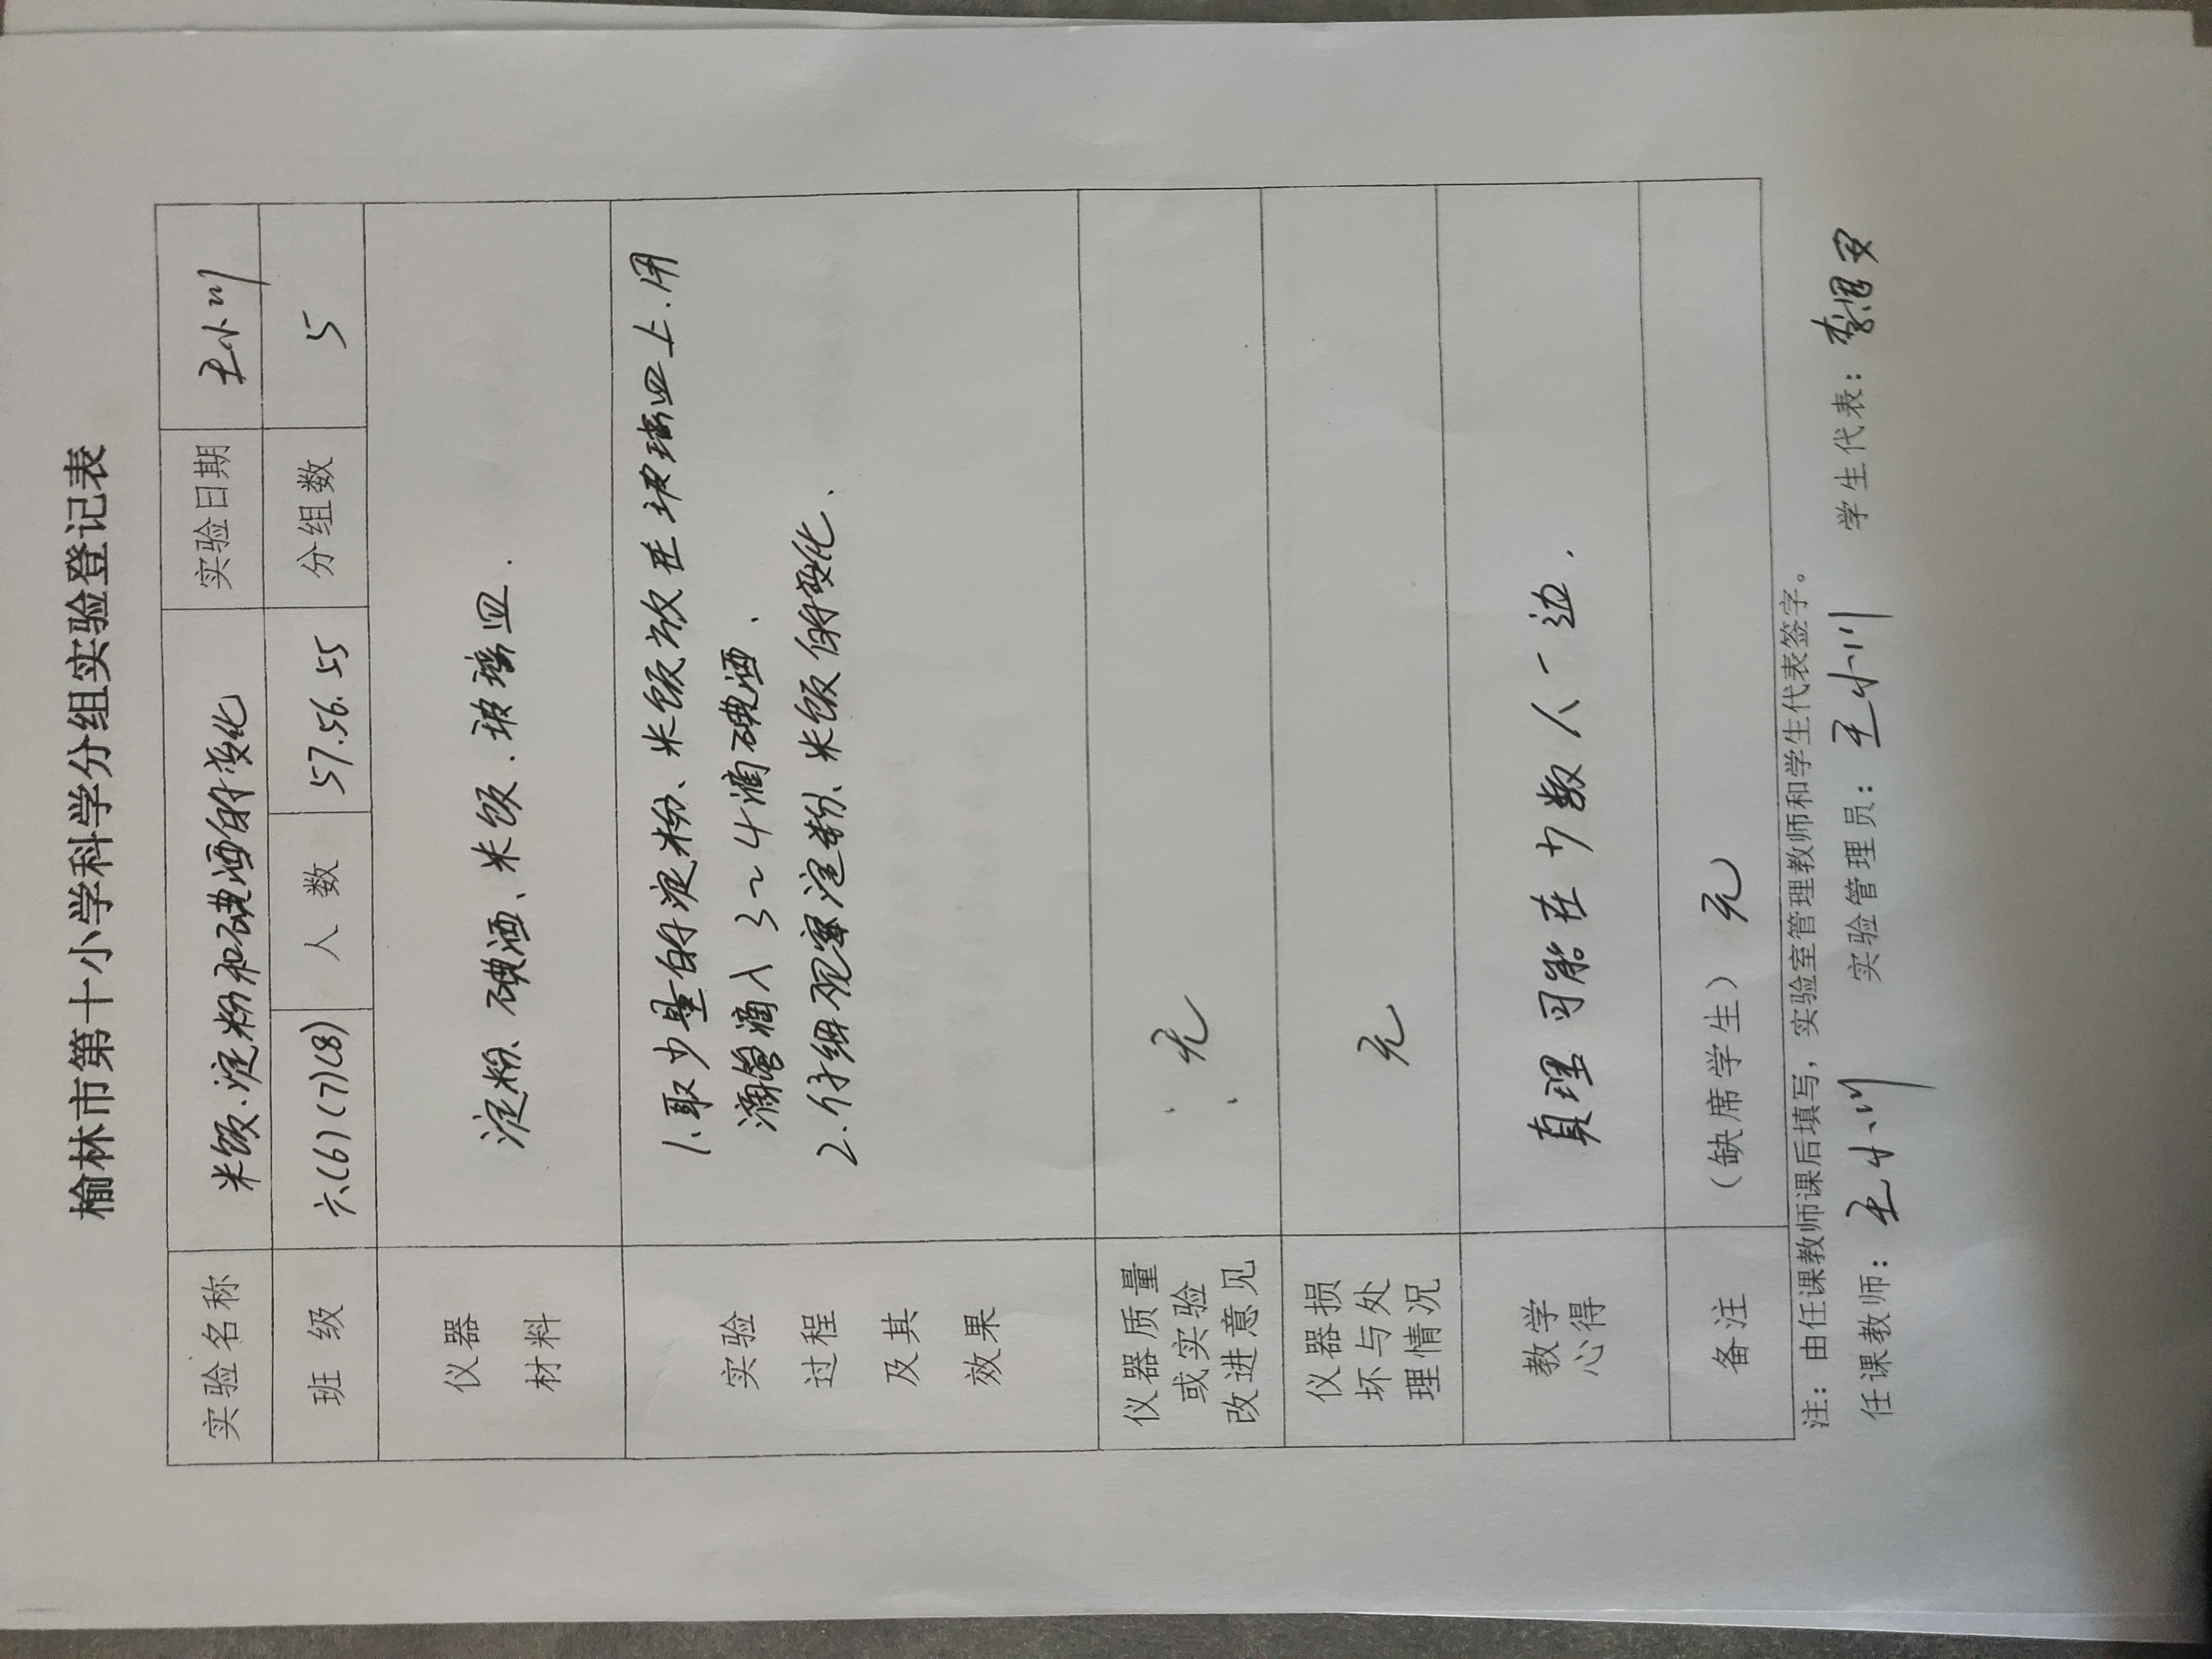 榆林市第十小学科学分组实验登记表
实验名称 米饭.淀粉和碘酒的变化 实验日期 王小川
班 级 六、(6)(7)(8) 人 数 57.56.55 分组数 5
仪器
材料
淀粉、碘酒、米饭.玻璃皿.
实验
过程
及其
效果
1、取少量的淀粉、米饭放在玻璃皿上.用
滴管滴入3~4滴碘酒、
2.仔细观察淀粉、米饭的变化、
仪器质量
或实验
改进意见
无
仪器损
坏与处
理情况
无
教学
心得
真理 在少数人一边.
备注 (缺席学生) 无
注：由任课教师课后填写，实验室管理教师和学生代表签字。
任课教师：王小川 实验管理员：王小川 学生代表：李